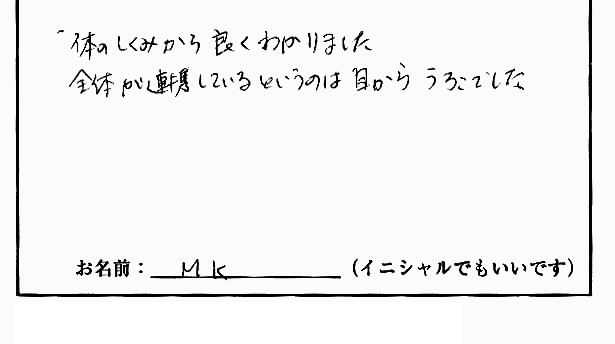 体のしくみから良くわかりました
全体が連携しているというのは目からうろこでした
お名前：MK（イニシャルでもいいです）